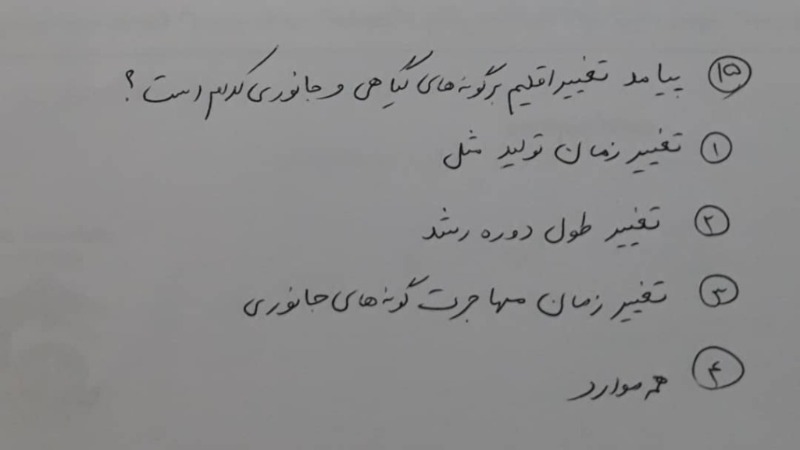 ۱۵ پیامد تغییر اقلیم بر گونه‌های گیاهی و جانوری کدام است؟
۱ تغییر زمان تولید مثل
۲ تغییر طول دوره رشد
۳ تغییر زمان مهاجرت گونه‌های جانوری
۴ همه موارد